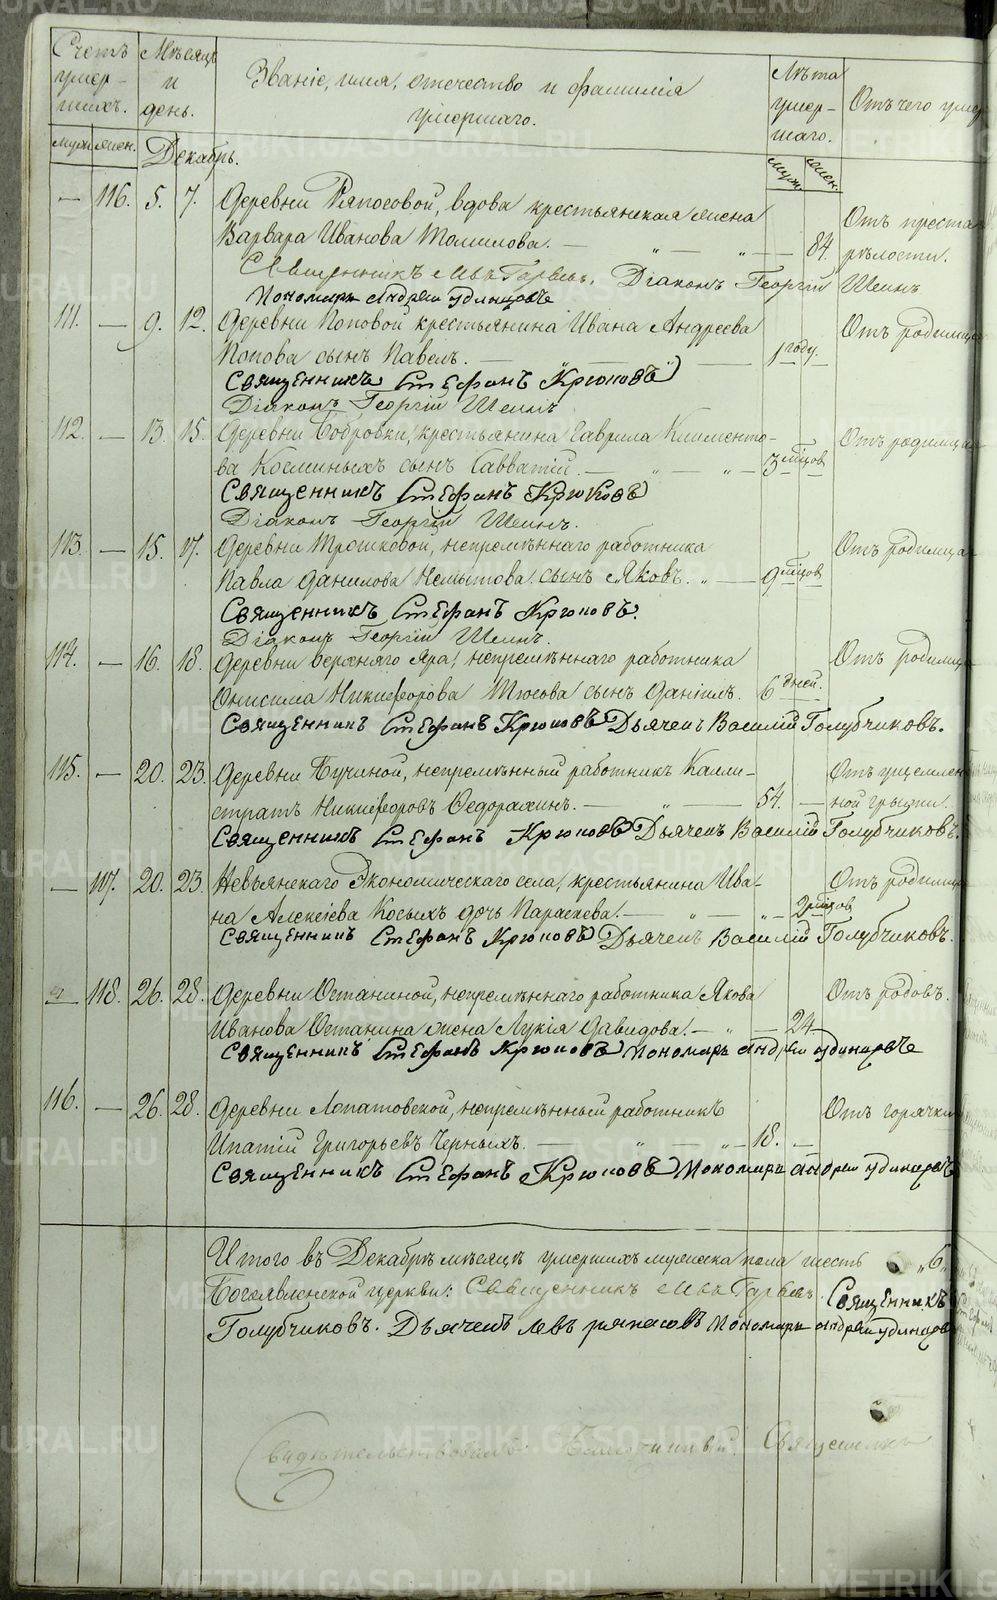 Счетъ умер-шихъ. Мѣсяцъ и день. Званіе, имя, отечество и фамилія умершаго. Лѣта умер-шаго. Отъ чего умер
муж. жен. Декабрь. муж. жен.
— 116. 5. 7. Деревни Ряпосовой, вдова крестьянская жена Отъ преста
Варвара Иванова Томилова. — " " — 84. рѣлости.
Священникъ Левъ Діаконъ Георгій Шеинъ
Пономарь Андрей Удинцовъ
111. — 9. 12. Деревни Поповой крестьянина Ивана Андреева Отъ родимца
Попова сынъ Павелъ. — 1 году.
Священникъ Стефанъ Крюковъ
Діаконъ Георгій Шеинъ
112. — 13. 15. Деревни Бобровки, крестьянина Гаврила Клименто- Отъ родимца
ва Косминыхъ сынъ Савватій. — " — " — 3 мѣцов
Священникъ Стефанъ Крюковъ
Діаконъ Георгій Шеинъ.
113. — 15. 17. Деревни Трошковой, непремѣннаго работника Отъ родимца
Павла Данилова Немытова сынъ Яковъ. " — 9 мѣцов
Священникъ Стефанъ Крюковъ.
Діаконъ Георгій Шеинъ.
114. — 16. 18. Деревни верхняго Яра, непремѣннаго работника Отъ родимца
Онисима Никифорова сынъ Даніилъ. 6 дней.
Священникъ Стефанъ Крюковъ Дьячекъ Василій Голубчиковъ.
115. — 20. 23. Деревни Бучиной, непремѣнный работникъ Калли- Отъ ущемлен
стратъ Никифоровъ Федорахинъ. — " — 54. — ной грыжи.
Священникъ Стефанъ Крюковъ Дьячекъ Василій Голубчиковъ.
— 117. 20. 23. Невьянскаго Экономическаго села, крестьянина Ива- Отъ родимца
на Алексѣева Косыхъ дочь Параскева. — " — " — 2 мѣцов
Священникъ Стефанъ Крюковъ Дьячекъ Василій Голубчиковъ.
118. 26. 28. Деревни Останиной, непремѣннаго работника Якова Отъ родовъ.
Иванова Останина жена Лукія Давидова. — " — 24
Священникъ Стефанъ Крюковъ Пономарь Андрей Удинцовъ
116. — 26. 28. Деревни Лопатовской, непремѣнный работникъ Отъ горячки
Ипатій Григорьевъ Черныхъ. — " — " — 18. —
Священникъ Стефанъ Крюковъ Пономарь Андрей Удинцовъ
Итого въ Декабрѣ мѣсяцѣ умершихъ мужеска пола шесть „6„
Богоявленской церкви: Священникъ Левъ Священникъ
Голубчиковъ. Дьячекъ Левъ Ряпасовъ Пономарь Андрей Удинцов
Свидѣтельствовалъ Благочинный Священникъ
METRIKI.GASO-URAL.RU